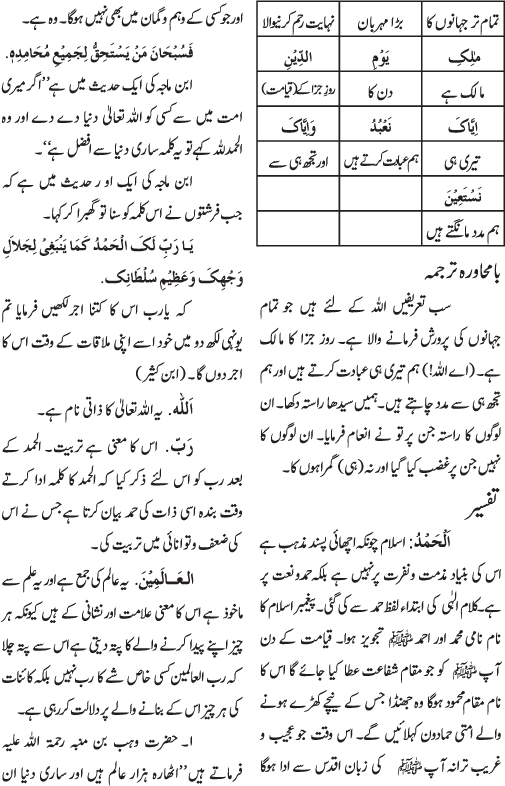 تمام تر جہانوں کا	بڑا مہربان	نہایت رحم کرنیوالا
مٰلِکِ	یَوْمِ	الدِّیْنِ
مالک ہے	دن کا	روز جزا کے (قیامت)
اِیَّاکَ	نَعْبُدُ	وَاِیَّاکَ
تیری ہی	ہم عبادت کرتے ہیں	اور تجھ ہی سے
نَسْتَعِیْنَ
ہم مدد مانگتے ہیں
بامحاورہ ترجمہ
سب تعریفیں اللہ کے لئے ہیں جو تمام
جہانوں کی پرورش فرمانے والا ہے۔ روز جزا کا مالک
ہے۔ (اے اللہ!) ہم تیری ہی عبادت کرتے ہیں اور ہم
تجھ ہی سے مدد چاہتے ہیں۔ ہمیں سیدھا راستہ دکھا۔ ان
لوگوں کا راستہ جن پر تو نے انعام فرمایا۔ ان لوگوں کا
نہیں جن پر غضب کیا گیا اور نہ (ہی) گمراہوں کا۔
تفسیر
اَلْحَمْدُ: اسلام چونکہ اچھائی پسند مذہب ہے
اس کی بنیاد مذمت و نفرت پر نہیں ہے بلکہ حمد و نعت پر
ہے۔ کلام الٰہی کی ابتداء لفظ حمد سے کی گئی۔ پیغمبر اسلام کا
نام نامی محمد اور احمد ﷺ تجویز ہوا۔ قیامت کے دن
آپ ﷺ کو جو مقام شفاعت عطا کیا جائے گا اس کا
نام مقام محمود ہوگا وہ جھنڈا جس کے نیچے کھڑے ہونے
والے امتی حمادون کہلائیں گے۔ اس وقت جو عجیب و
غریب ترانہ آپ ﷺ کی زبان اقدس سے ادا ہوگا
اور جو کسی کے وہم و گمان میں بھی نہیں ہوگا۔ وہ ہے۔
فَسُبْحَانَ مَنْ یَسْتَحِقُّ لِجَمِیْعِ مُحَامِدِہٖ.
ابن ماجہ کی ایک حدیث میں ہے ’’اگر میری
امت میں سے کسی کو اللہ تعالیٰ دنیا دے دے اور وہ
الحمدللہ کہے تو یہ کلمہ ساری دنیا سے افضل ہے‘‘۔
ابن ماجہ کی ایک اور حدیث میں ہے کہ
جب فرشتوں نے اس کلمہ کو سنا تو گھبرا کر کہا۔
یَا رَبِّ لَکَ الْحَمْدُ کَمَا یَنْبَغِیْ لِجَلَالِ
وَجْھِکَ وَعَظِیْمِ سُلْطَانِکَ.
کہ یارب اس کا کتنا اجر لکھیں فرمایا تم
یونہی لکھ دو میں خود اسے اپنی ملاقات کے وقت اس کا
اجر دوں گا۔ (ابن کثیر)
اَللّٰہ. یہ اللہ تعالیٰ کا ذاتی نام ہے۔
رَبّ. اس کا معنی ہے تربیت۔ الحمد کے
بعد رب کو اس لئے ذکر کیا کہ الحمد کا کلمہ ادا کرتے
وقت بندہ اسی ذات کی حمد بیان کرتا ہے جس نے اس
کی ضعف و توانائی میں تربیت کی۔
الْعَالَمِیْنَ. یہ عالم کی جمع ہے اور یہ علم سے
ماخوذ ہے اس کا معنی علامت اور نشانی کے ہیں کیونکہ ہر
چیز اپنے پیدا کرنے والے کا پتہ دیتی ہے اس سے پتہ چلا
کہ رب العالمین کسی خاص شے کا رب نہیں بلکہ کائنات
کی ہر چیز اس کے بنانے والے پر دلالت کر رہی ہے۔
۱۔ حضرت وہب بن منبہ رحمۃ اللہ علیہ
فرماتے ہیں ’’اٹھارہ ہزار عالم ہیں اور ساری دنیا ان